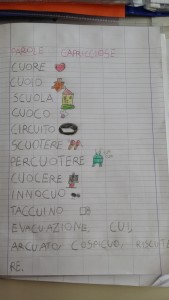 PAROLE CAPRICCIOSE
CUORE
CUOIO
SCUOLA
CUOCO
CIRCUITO
SCUOTERE
PERCUOTERE
CUOCERE
INNOCUO
TACCUINO
EVACUAZIONE, CUI,
ARCUATO, COSPICUO, RISCUOTE
RE.